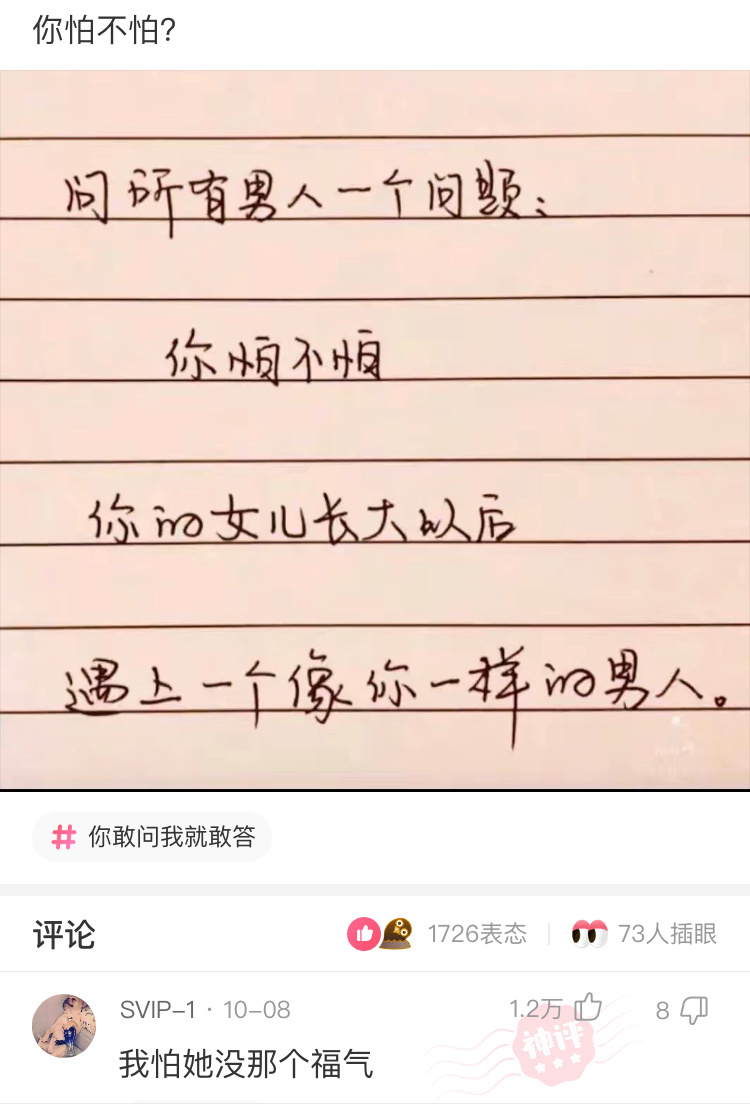 你怕不怕?
问所有男人一个问题：
你怕不怕
你的女儿长大以后
遇上一个像你一样的男人。
# 你敢问我就敢答
评论
1726表态
73人插眼
SVIP-1 · 10-08
1.2万
8
神评
我怕她没那个福气